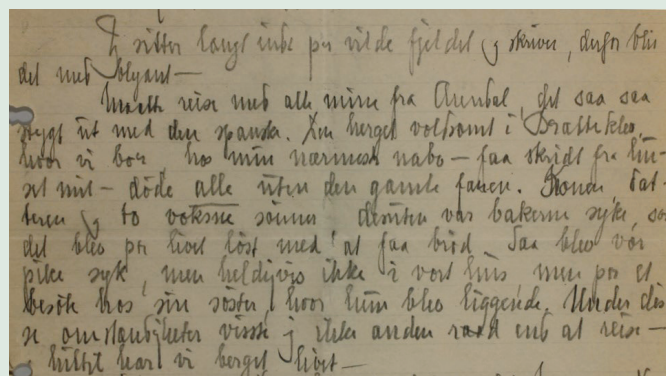 I sitter langt inde på vilde fjeldet og skriver, derfor blir
det med blyant—
Maatte reise med alle mine fra Arendal, det saa saa
stygt ut med den spanske. Den herget voldsomt i Brattekleiv,
hvor vi bor, hos min nærmeste nabo — faa skridt fra hu-
set mit — döde alle uten den gamle faren. Konen, dat-
teren og to voksne sönner desuten var bakerne syke, so
det blev på livet löst med at faa bröd. Saa blev vor
pike syk, men heldigvis ikke i vort hus men på et
besök hos sin söster, hvor hun blev liggende. Under dis
se omstændigheter visste j ikke anden raad end at reise—
hittil har vi berget livet—